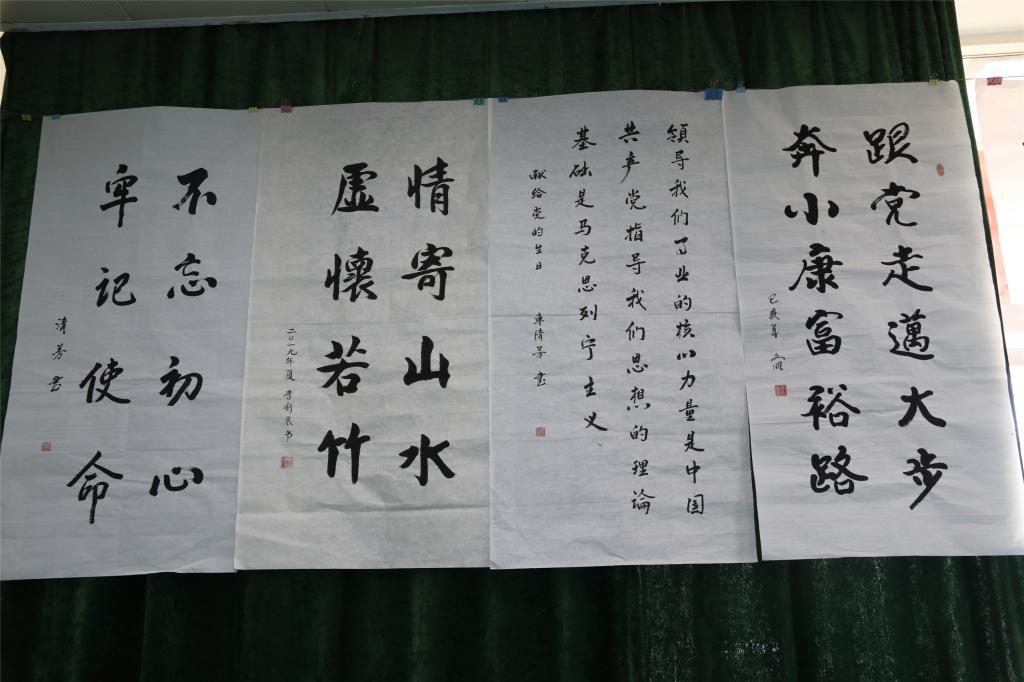 跟党走邁大步
奔小康富裕路
己亥年
領导我们事业的核心力量是中国
共产党指导我们思想的理论
基础是马克思列宁主义
献给党的生日
車清芳 书
情寄山水
虚懷若竹
二〇一九年夏 李舒晨书
不忘初心
牢记使命
清芳 书